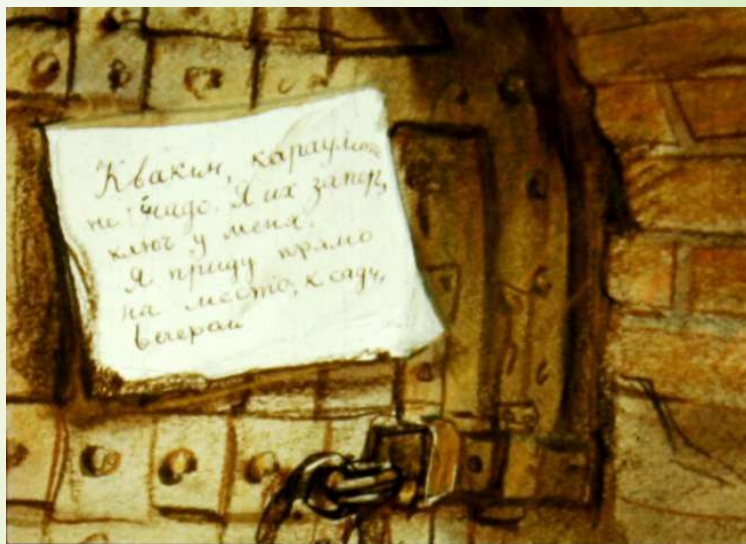 Квакин, караулить
не надо. Я их запер,
ключ у меня.
Я приду прямо
на место, к саду,
вечером